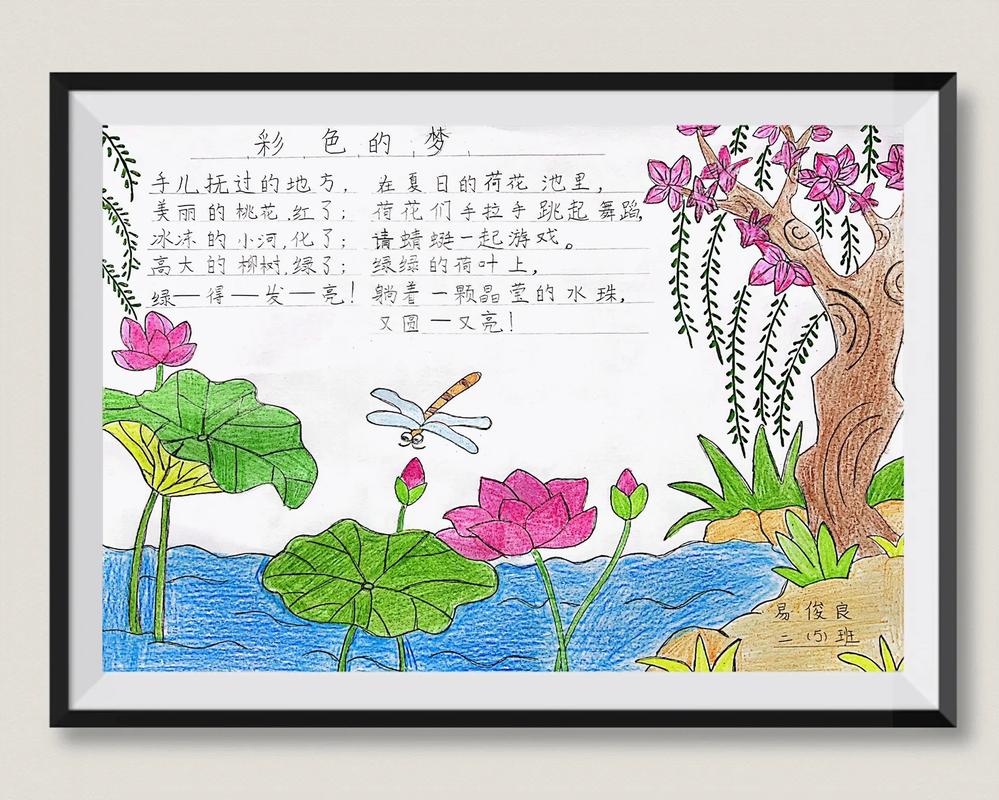 彩色的梦
手儿抚过的地方，
美丽的桃花.红了；
冰冻的小河.化了；
高大的柳树.绿了；
绿一得一发一亮！
在夏日的荷花池里，
荷花们手拉手跳起舞蹈，
请蜻蜓一起游戏。
绿绿的荷叶上，
躺着一颗晶莹的水珠，
又圆一又亮！
易俊良
二（5）班